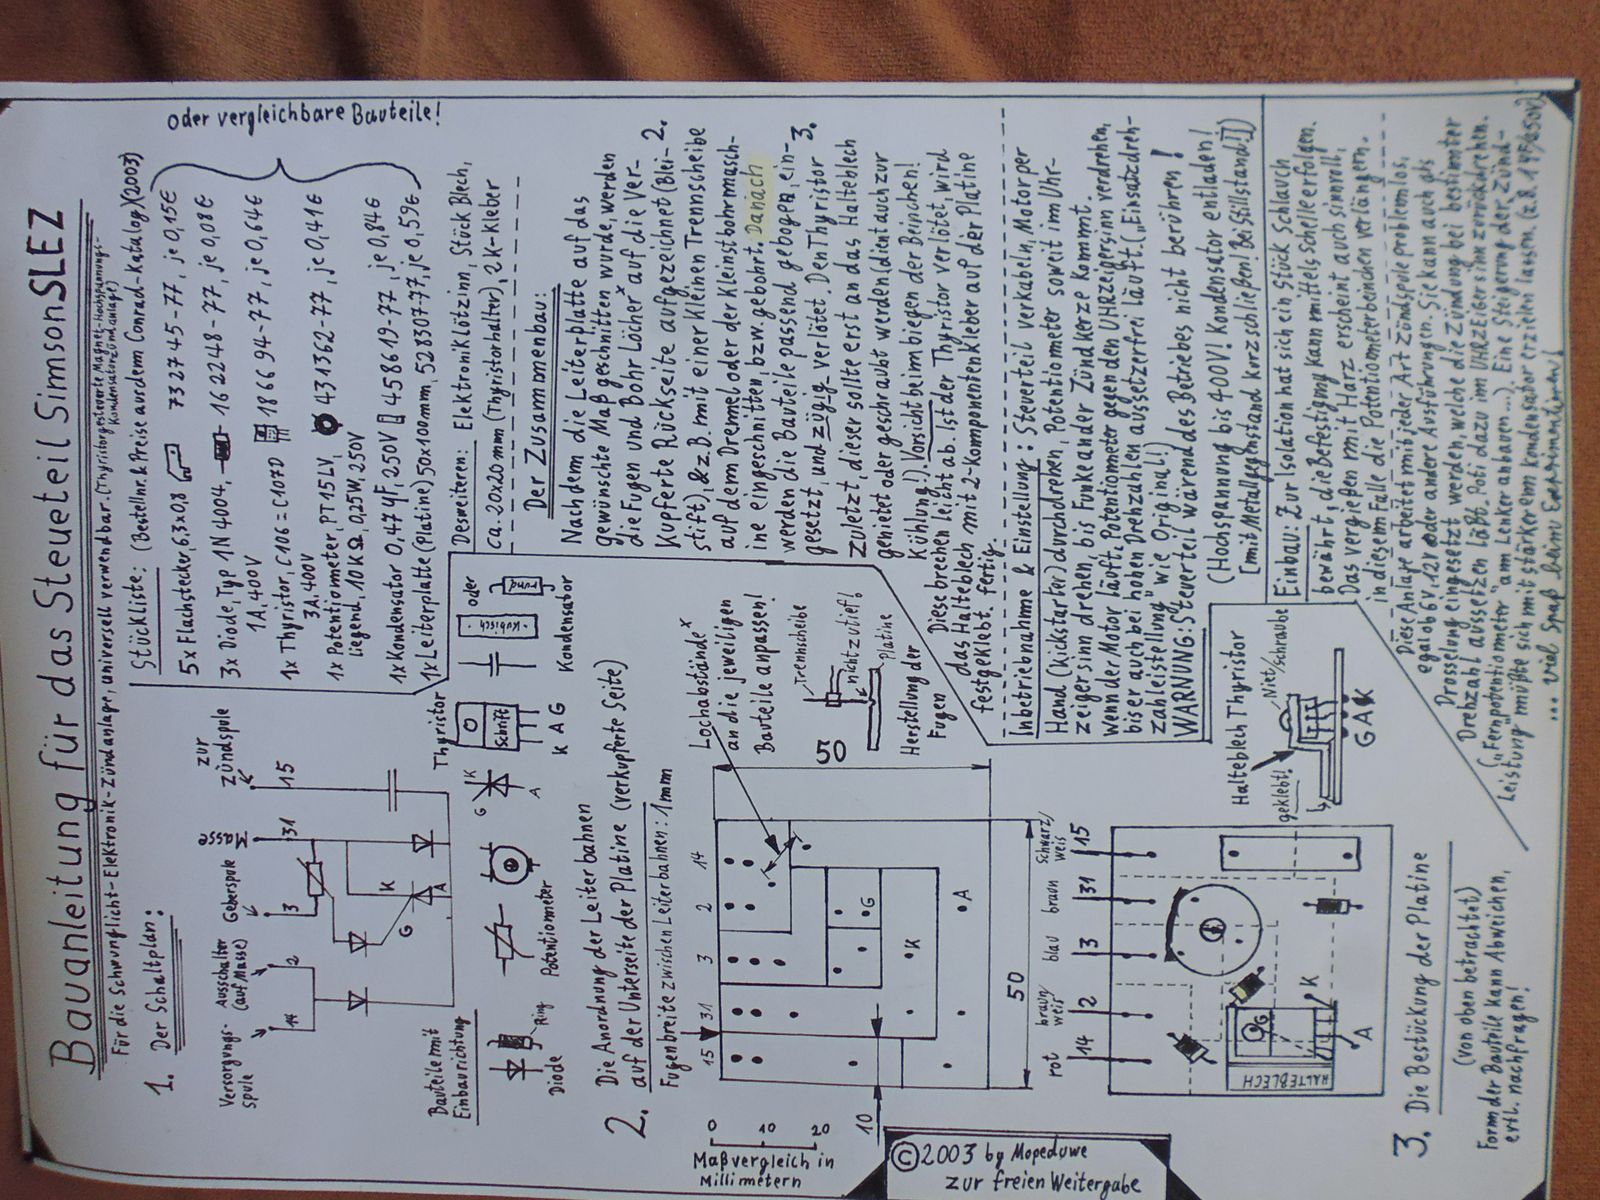 Bauanleitung für das Steuerteil Simson SLEZ
Für die Schwunglicht-Elektronik-Zündanlage, universell verwendbar. (Thyristorgesteuerte Magnet-Hochspannungs-
Kondensatorzündanlage)
1. Der Schaltplan:
Versorgungs-
spule
Ausschalter
(auf Masse)
Geberspule
Masse
zur
Zündspule
14
2
3
31
15
K
G
A
Stückliste: (Bestellnr. & Preise aus dem Conrad-Katalog) (2003)
5x Flachstecker, 6,3x0,8 732745-77, je 0,15€
3x Diode, Typ 1N4004, 162248-77, je 0,08€
1A, 400V
1x Thyristor, C106 = C107D 186694-77, je 0,64€
3A, 400V
1x Potentiometer, PT15LV, 431362-77, je 0,41€
liegend, 10KΩ, 0,25W, 250V
1x Kondensator 0,47µF, 250V 458619-77, je 0,84€
1x Leiterplatte (Platine) 50x100mm, 528307-77, je 0,59€
oder vergleichbare Bauteile!
Desweiteren: Elektroniklötzinn, Stück Blech,
ca. 20x20mm (Thyristorhalter), 2K-Kleber
Bauteile mit
Einbaurichtung
Ring
Diode
Potentiometer
G
K
A
Thyristor
Schrift
K A G
Kubisch
oder
rund
Kondensator
Der Zusammenbau:
Nachdem die Leiterplatte auf das
gewünschte Maß geschnitten wurde, werden
die Fugen und Bohrlöcher x auf die Ver-
kupferte Rückseite aufgezeichnet (Blei- 2.
stift), & z.B. mit einer kleinen Trennscheibe
auf dem Dremel oder der Kleinstbohrmasch-
ine eingeschnitten, bzw. gebohrt. Danach
werden die Bauteile passend gebogen, ein- 3.
gesetzt, und zügig verlötet. Den Thyristor
zuletzt, dieser sollte erst an das Halteblech
genietet oder geschraubt werden (dient auch zur
Kühlung!). Vorsicht beim biegen der Beinchen!
Diese brechen leicht ab. Ist der Thyristor verlötet, wird
das Halteblech mit 2-Komponentenkleber auf der Platine
festgeklebt. fertig.
2. Die Anordnung der Leiterbahnen
auf der Unterseite der Platine (verkupferte Seite)
Fugenbreite zwischen Leiterbahnen: 1mm
15 31 3 2 14
G
K
A
50
50
10
Lochabstände x
an die jeweiligen
Bauteile anpassen!
Trennscheibe
nicht zu tief!
Platine
Herstellung der
Fugen
Maßvergleich in
Millimetern
0
10
20
Inbetriebnahme & Einstellung: Steuerteil verkabeln, Motor per
Hand (Kickstarter) durchdrehen, Potentiometer soweit im Uhr-
zeigersinn drehen, bis Funke an der Zündkerze kommt.
Wenn der Motor läuft, Potentiometer gegen den UHRzeigersinn verdrehen,
bis er auch bei hohen Drehzahlen aussetzerfrei läuft („Einsatzdreh-
zahleistellung" wie Original!)
WARNUNG: Steuerteil wärend des Betriebes nicht berühren!
(Hochspannung bis 400V! Kondensator entladen!
[mit Metallgegenstand kurzschließen! Bei Stillstand!])
Einbau: Zur Isolation hat sich ein Stück Schlauch
bewährt, die Befestigung kann mittels Schelle erfolgen.
Das vergießen mit Harz erscheint auch sinnvoll,
in diesem Falle die Potentiometerbeinchen verlängern.
Diese Anlage arbeitet mit jeder Art Zündspule problemlos,
egal ob 6V, 12V oder andere Ausführungen. Sie kann auch als
Drosselung eingesetzt werden, welche die Zündung bei bestimmter
Drehzahl aussetzen läßt. Poti dazu im UHRZeigersinn zurückdrehen.
(„Fernpotentiometer" am Lenker anbauen...). Eine Steigerung der Zünd-
Leistung müßte sich mit stärkerem Kondensator erzielen lassen.
... viel Spaß beim Experimentieren!
Halteblech Thyristor
Niet/Schraube
geklebt!
G A K
rot
braun/
weis
blau
braun
Schwarz/
weis
14 2 3 31 15
HALTEBLECH
G
K
A
3. Die Bestückung der Platine
(von oben betrachtet)
Form der Bauteile kann Abweichen,
ertl. nachfragen!
©2003 by Mopeduwe
zur freien Weitergabe